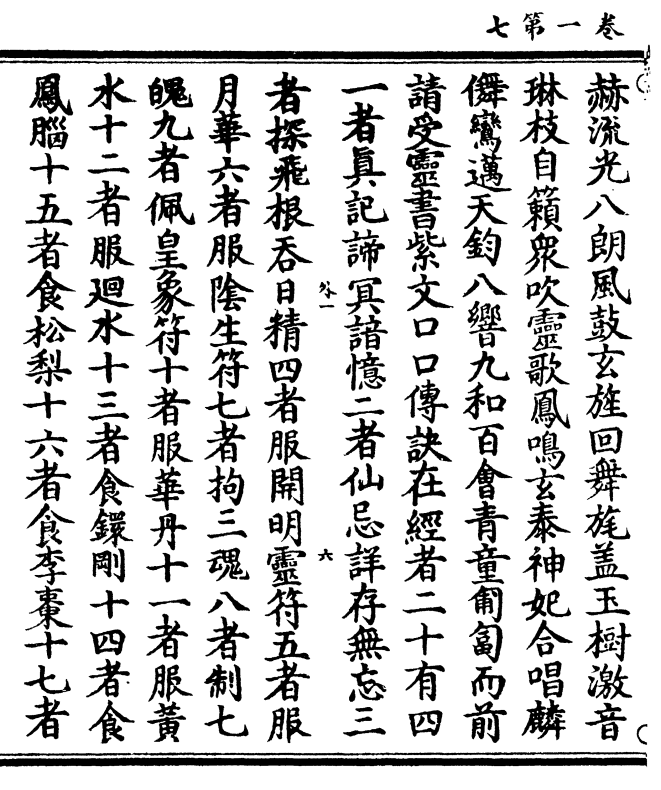 卷一第七
赫流光八朗風鼓玄旌回舞旄盖玉樹激音
琳枝自籟衆吹靈歌鳳鳴玄泰神妃合唱麟
儛鸞邁天鈞八響九和百會青童匍匐而前
請受靈書紫文口口傳訣在經者二十有四
一者眞記諦冥諳憶二者仙忌詳存無忘三
者採飛根吞日精四者服開明靈符五者服
月華六者服陰生符七者拘三魂八者制七
魄九者佩皇象符十者服華丹十一者服黃
水十二者服廻水十三者食鐶剛十四者食
鳳腦十五者食松梨十六者食李棗十七者
外一
六